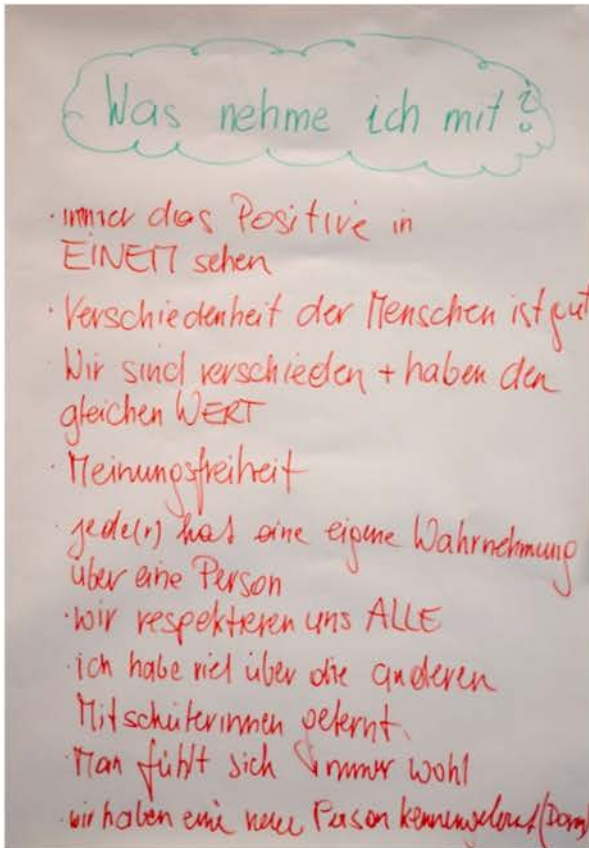 Was nehme ich mit?
· immer das Positive in
EINEM sehen
· Verschiedenheit der Menschen ist gut
· Wir sind verschieden + haben den
gleichen WERT
· Meinungsfreiheit
· jede(r) hat eine eigene Wahrnehmung
über eine Person
· wir respektieren uns ALLE
· ich habe viel über die anderen
Mitschülerinnen gelernt.
· Man fühlt sich immer wohl
· wir haben eine neue Person kennengelernt